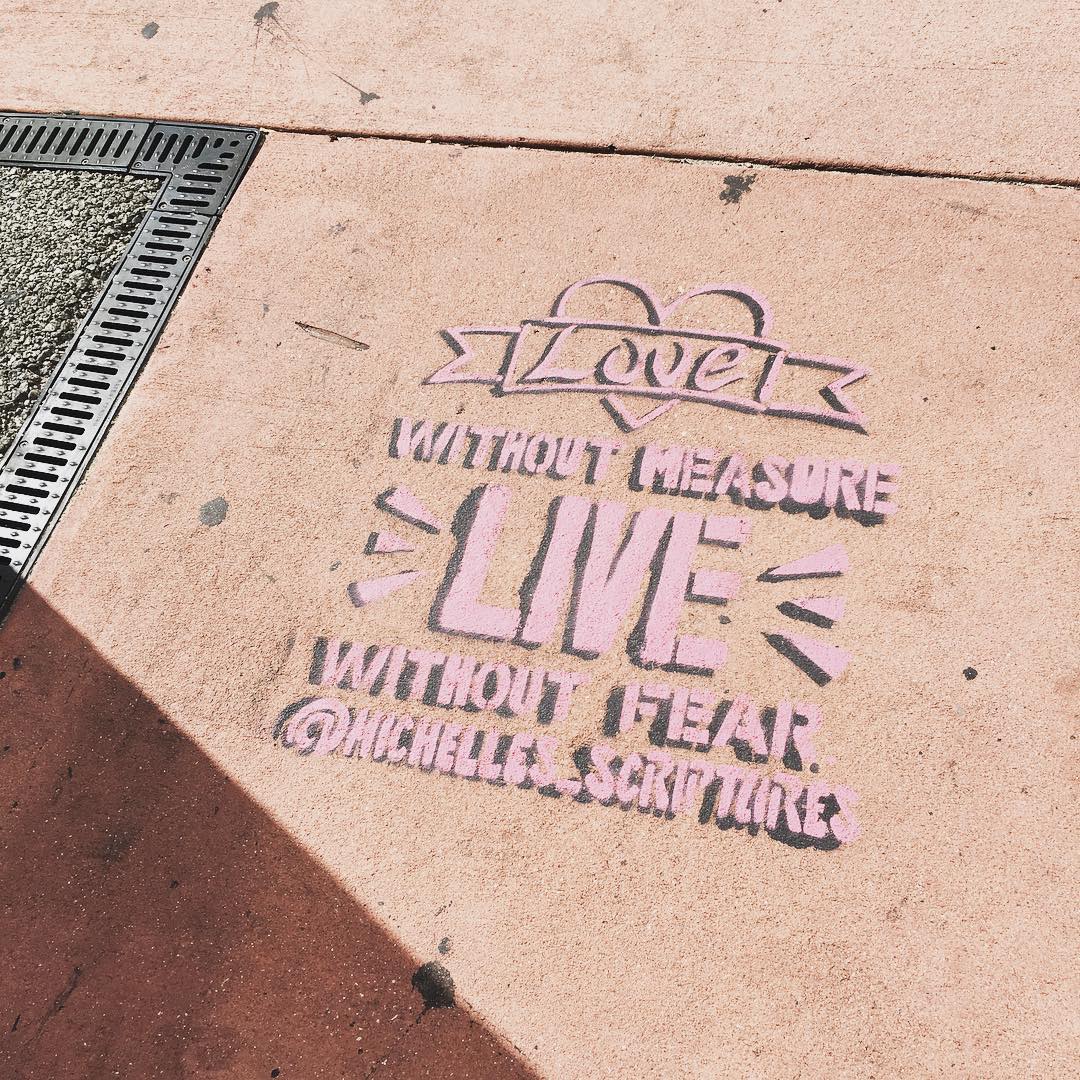 Love
WITHOUT MEASURE
LIVE
WITHOUT FEAR.
@MICHELLES_SCRIPTURES